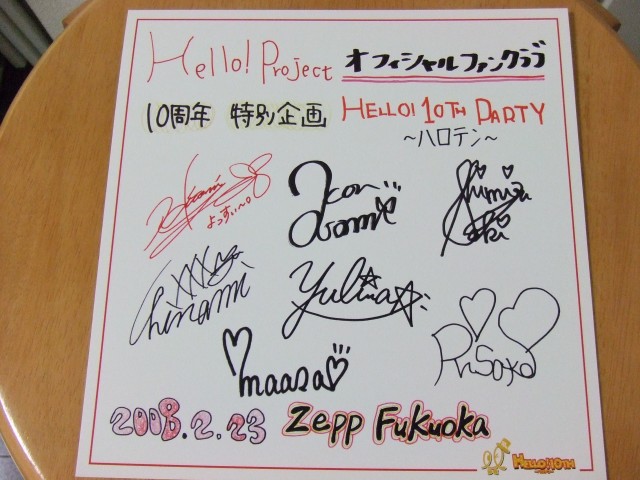 Hello! Project オフィシャルファンクラブ
10周年 特別企画 HELLO! 10TH PARTY
~ハロテン~
よっすぃ~。
Shimizu
Saki
Chinami
Yurina
maasa
Risako
2008.2.23 Zepp Fukuoka
HELLO! 10TH